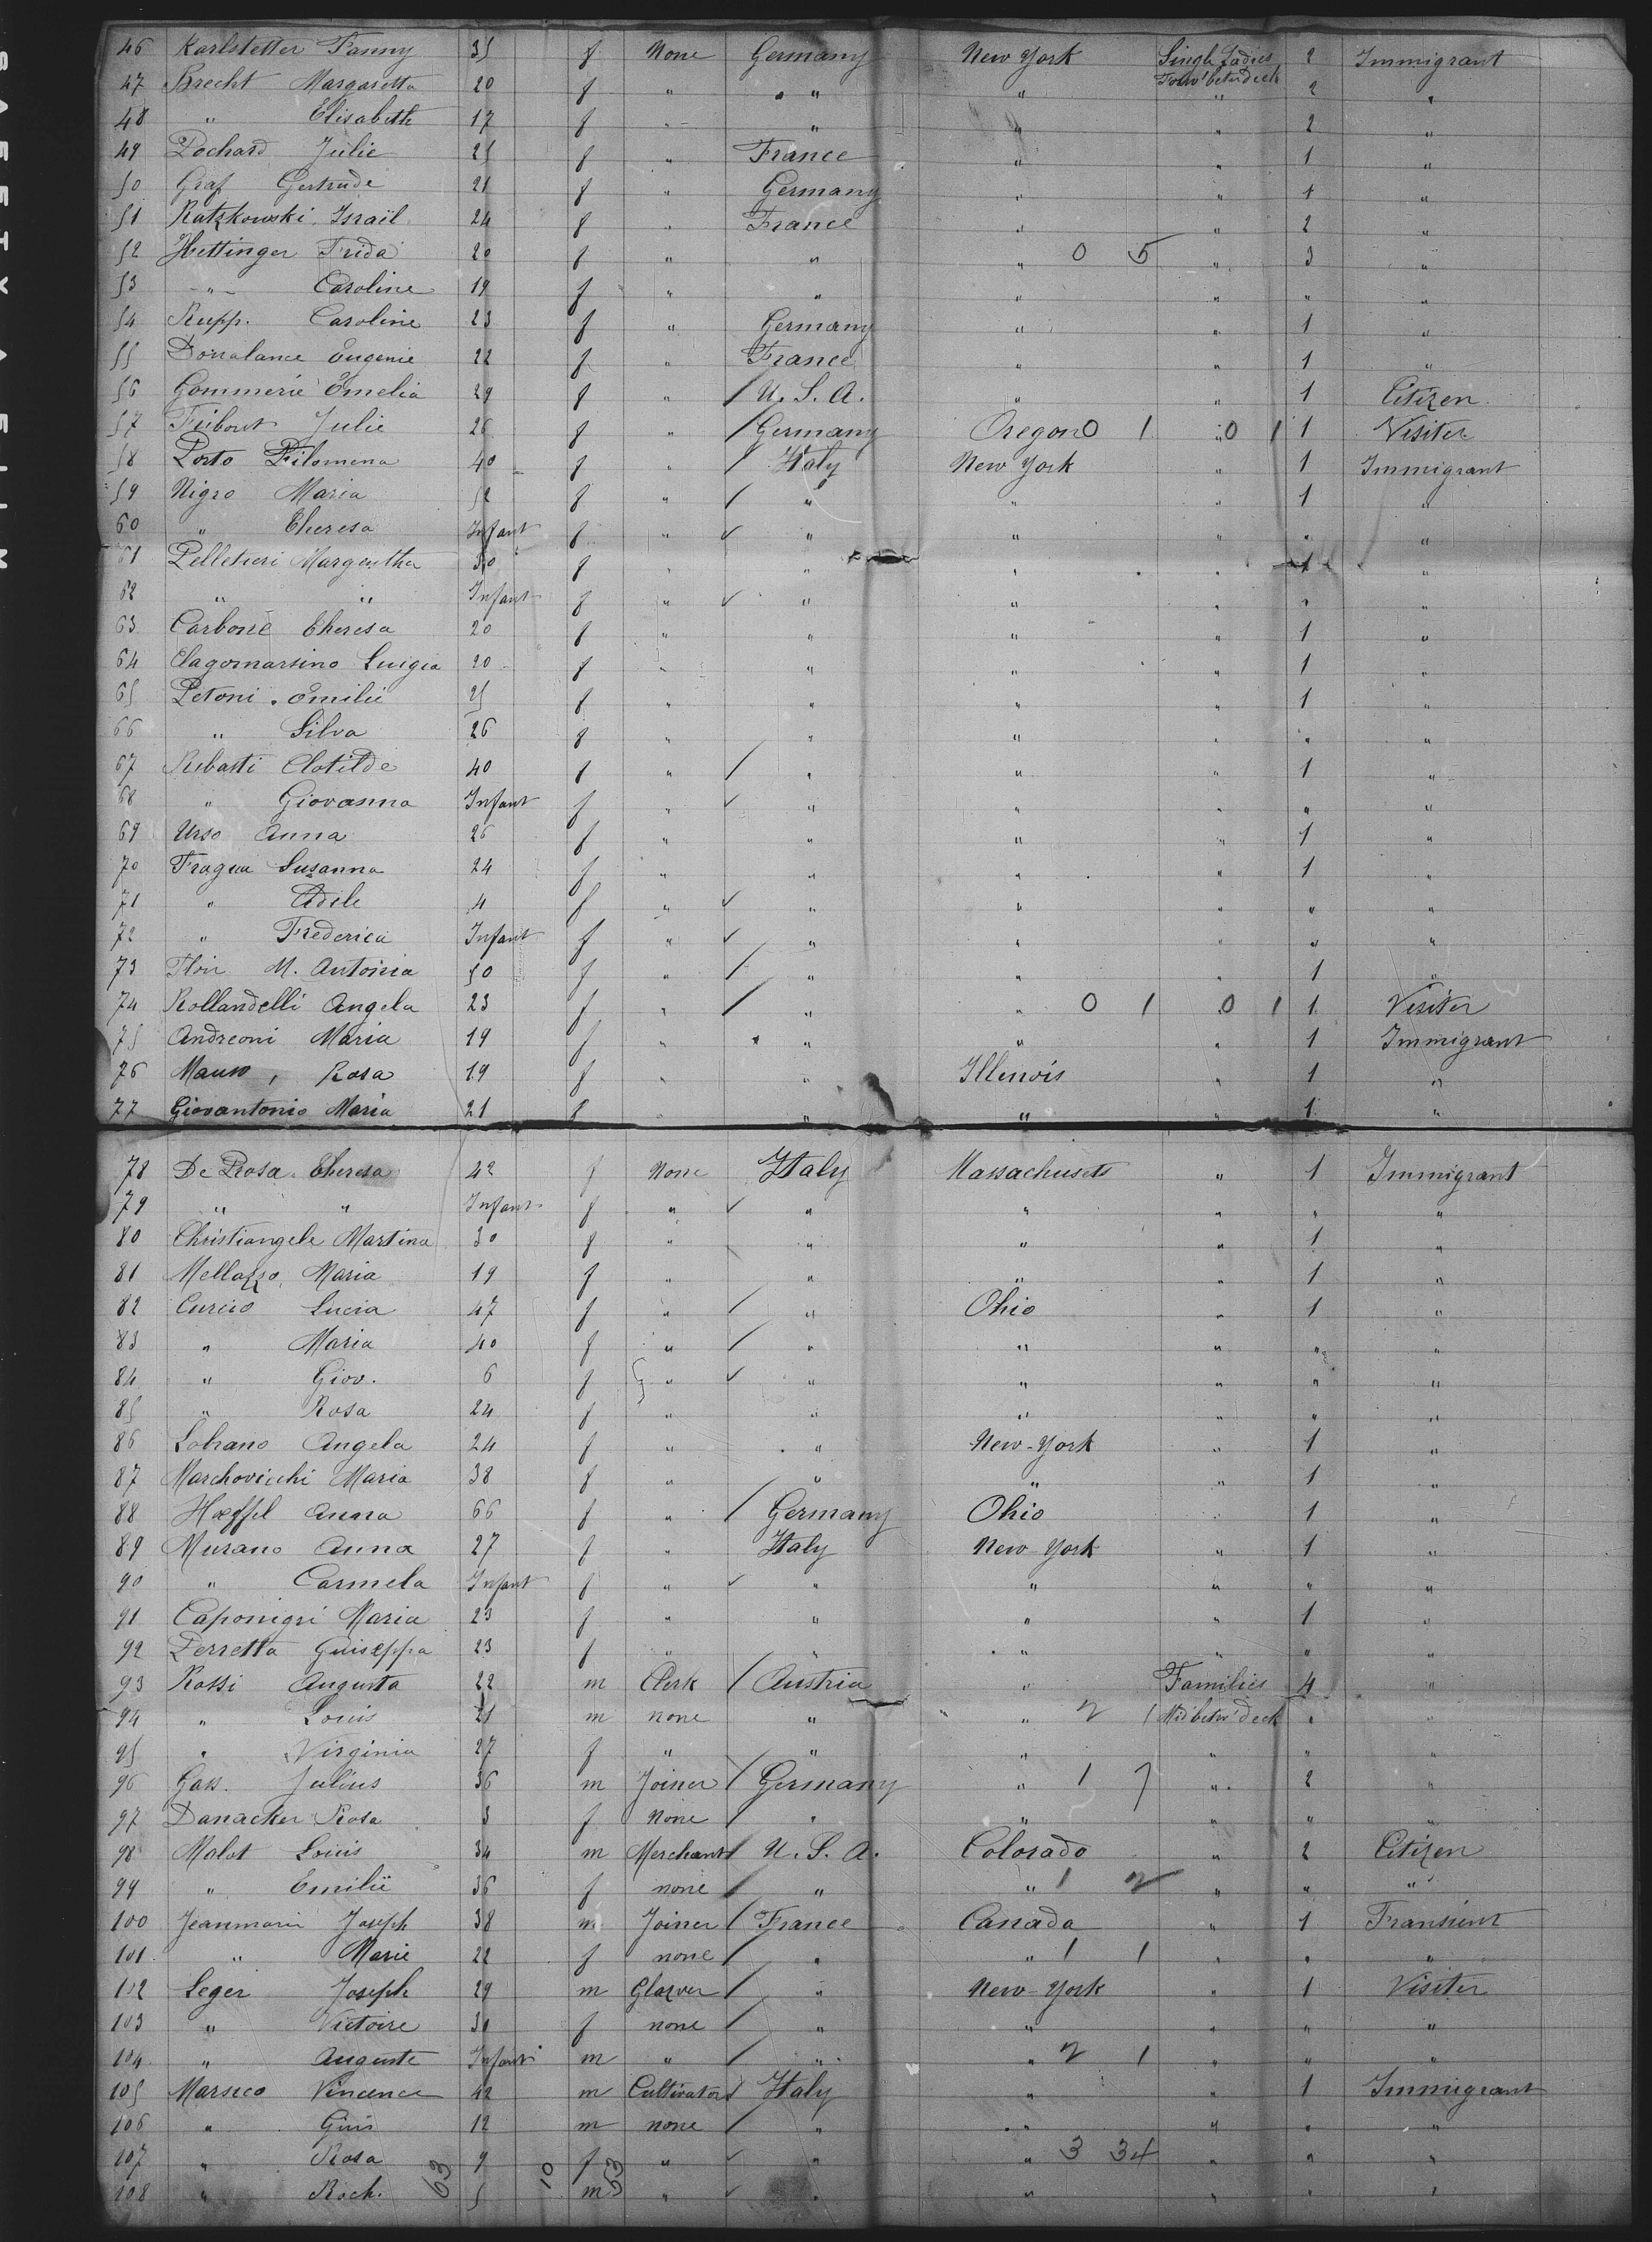 46 Karlstetter Fanny 35 f None Germany New York Single Ladies 2 Immigrant
47 Brecht Margaretta 20 f " " " Forw' betw deck 2 "
48 " Elisabeth 17 f " " " " 2 "
49 Pochard Julie 25 f " France " " 1 "
50 Graf Gertrude 21 f " Germany " " 1 "
51 Ratzkowski Israïl 24 f " France " " 2 "
52 Hettinger Frida 20 f " " " 0 5 " 3 "
53 " Caroline 19 f " " " " " "
54 Rupp. Caroline 23 f " Germany " " 1 "
55 Donalance Eugenie 22 f " France " " 1 "
56 Gommerie Emelia 29 f " / U. S. A. " " 1 Citizen
57 Julie 26 f " / Germany Oregon 0 1 " 0 1 1 Visiter
58 Porto Filomena 40 f " / Italy New York " 1 Immigrant
59 Nigro Maria 52 f " / " " " 1 "
60 " Theresa Infant f " ✓ " " " " "
61 Pelletieri 30 f " " " " 1 "
62 " " Infant f " ✓ " " " " "
63 Carbone Theresa 20 f " " " " 1 "
64 Lagomarsino Luigia 20 f " " " " 1 "
65 Petoni Emilie 25 f " " " " 1 "
66 " Silva 26 f " " " " " "
67 Rebasti Clotilde 40 f " / " " " 1 "
68 " Giovanna Infant f " ✓ " " " " "
69 Urso Anna 26 f " " " " 1 "
70 Fragua Susanna 24 f " " " " 1 "
71 " Adile 4 f " ✓ " " " " "
72 " Frederica Infant f " ✓ " " " " "
73 M. Antonia 50 f " / " " " 1 "
74 Rollandelli Angela 23 f " / " " 0 1 " 0 1 1 Visiter
75 Andreoni Maria 19 f " " " " 1 Immigrant
76 Rosa 19 f " " Illinois " 1 "
77 Giovantonio Maria 21 f " " " " 1 "
78 De Rosa Theresa 42 f None Italy Massachusets " 1 Immigrant
79 " " Infant f " ✓ " " " " "
80 Christiangele Martina 30 f " " " " 1 "
81 Mellazzo Maria 19 f " " " " 1 "
82 Curcio Lucia 47 f " / " Ohio " 1 "
83 " Maria 40 f " / " " " " "
84 " Giov. 6 f " ✓ " " " " "
85 " Rosa 24 f " " " " " "
86 Angela 24 f " " New-York " 1 "
87 Marchovicchi Maria 38 f " " " " 1 "
88 Hoeffel Anna 66 f " / Germany Ohio " 1 "
89 Murano Anna 27 f " Italy New York " 1 "
90 " Carmela Infant f " ✓ " " " " "
91 Caponigri Maria 23 f " " " " 1 "
92 Perretta Guiseppa 23 f " " " " " "
93 Rossi Augusta 22 m Clerk / Austria " Families 4 "
94 " Louis 21 m none " " 2 1 Mid betw' deck " "
95 " Virginia 27 f " / " " " " "
96 Gass. Julius 36 m Joiner / Germany " 1 7 " 2 "
97 Danacker Rosa 3 f None / " " " " "
98 Molot Louis 34 m Merchant / U. S. A. Colorado " 2 Citizen
99 " Emilie 36 f none / " " 1 2 " " "
100 Jeanmarie Joseph 38 m Joiner / France Canada " 1 Transient
101 " Marie 22 f none / " " 1 1 " " "
102 Leger Joseph 29 m / " New-York " 1 Visiter
103 " Victoire 30 f none / " " " " "
104 " Auguste Infant m " / " " 2 1 " " "
105 Marseco Vincence 42 m Cultivator / Italy " " 1 Immigrant
106 " 12 m none / " " " " "
107 " Rosa 9 f " ✓ " " 3 34 " " "
108 " Roch. 5 m " ✓ " " " " "
63 10 53